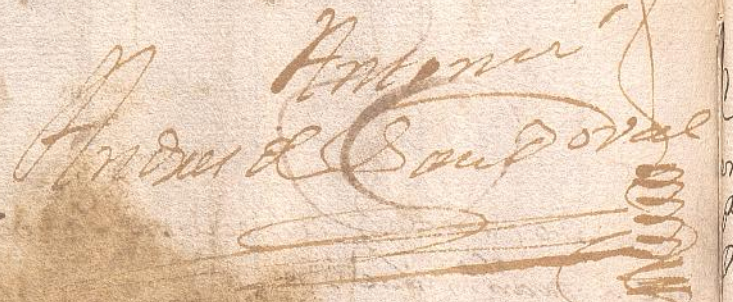 Antonio
Andres de Sandoval